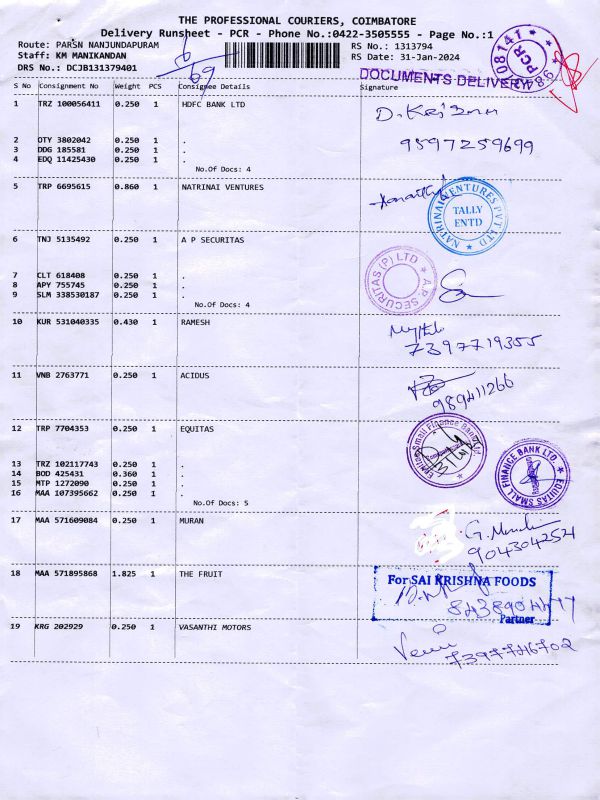 THE PROFESSIONAL COURIERS, COIMBATORE
Delivery Runsheet - PCR - Phone No.:0422-3505555 - Page No.:1
Route: PARSN NANJUNDAPURAM
RS No.: 1313794
Staff: KM MANIKANDAN
RS Date: 31-Jan-2024
DRS No.: DCJB131379401
6/69
DOCUMENTS DELIVERY
PCR
S No Consignment No Weight PCS Consignee Details Signature
1 TRZ 100056411 0.250 1 HDFC BANK LTD
D. Krishna
2 OTY 3802042 0.250 1 .
9597259699
3 DDG 185581 0.250 1 .
4 EDQ 11425430 0.250 1 .
No.Of Docs: 4
5 TRP 6695615 0.860 1 NATRINAI VENTURES
NATRINAI VENTURES PVT LTD
TALLY
ENTD
6 TNJ 5135492 0.250 1 A P SECURITAS
A.P. SECURITAS (P) LTD
7 CLT 618408 0.250 1 .
8 APY 755745 0.250 1 .
9 SLM 338530187 0.250 1 .
No.Of Docs: 4
10 KUR 531040335 0.430 1 RAMESH
7397719355
11 VNB 2763771 0.250 1 ACIDUS
989411266
12 TRP 7704353 0.250 1 EQUITAS
Equitas Small Finance Bank Ltd
13 TRZ 102117743 0.250 1 .
EQUITAS SMALL FINANCE BANK LTD.
14 BOD 425431 0.360 1 .
15 MTP 1272090 0.250 1 .
16 MAA 107395662 0.250 1 .
No.Of Docs: 5
17 MAA 571609084 0.250 1 MURAN
9043042524
18 MAA 571895868 1.825 1 THE FRUIT
For SAI KRISHNA FOODS
Partner
19 KRG 202929 0.250 1 VASANTHI MOTORS
7397746702